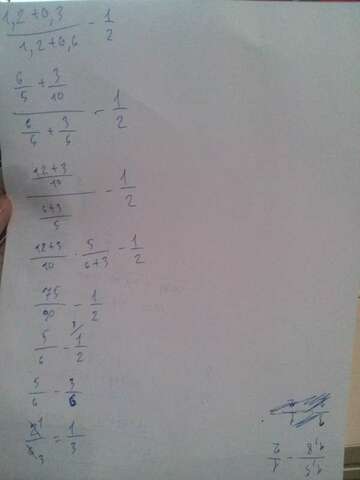 (1,2+0,3)/(1,2+0,6) - 1/2
(6/5 + 3/10)/(6/5 + 3/5) - 1/2
((12+3)/10)/((6+3)/5) - 1/2
(12+3)/10 · 5/(6+3) - 1/2
75/90 - 1/2
5/6 - 1/2
5/6 - 3/6
2/6 1/3 = 1/3
1,5/1,8 - 1/2